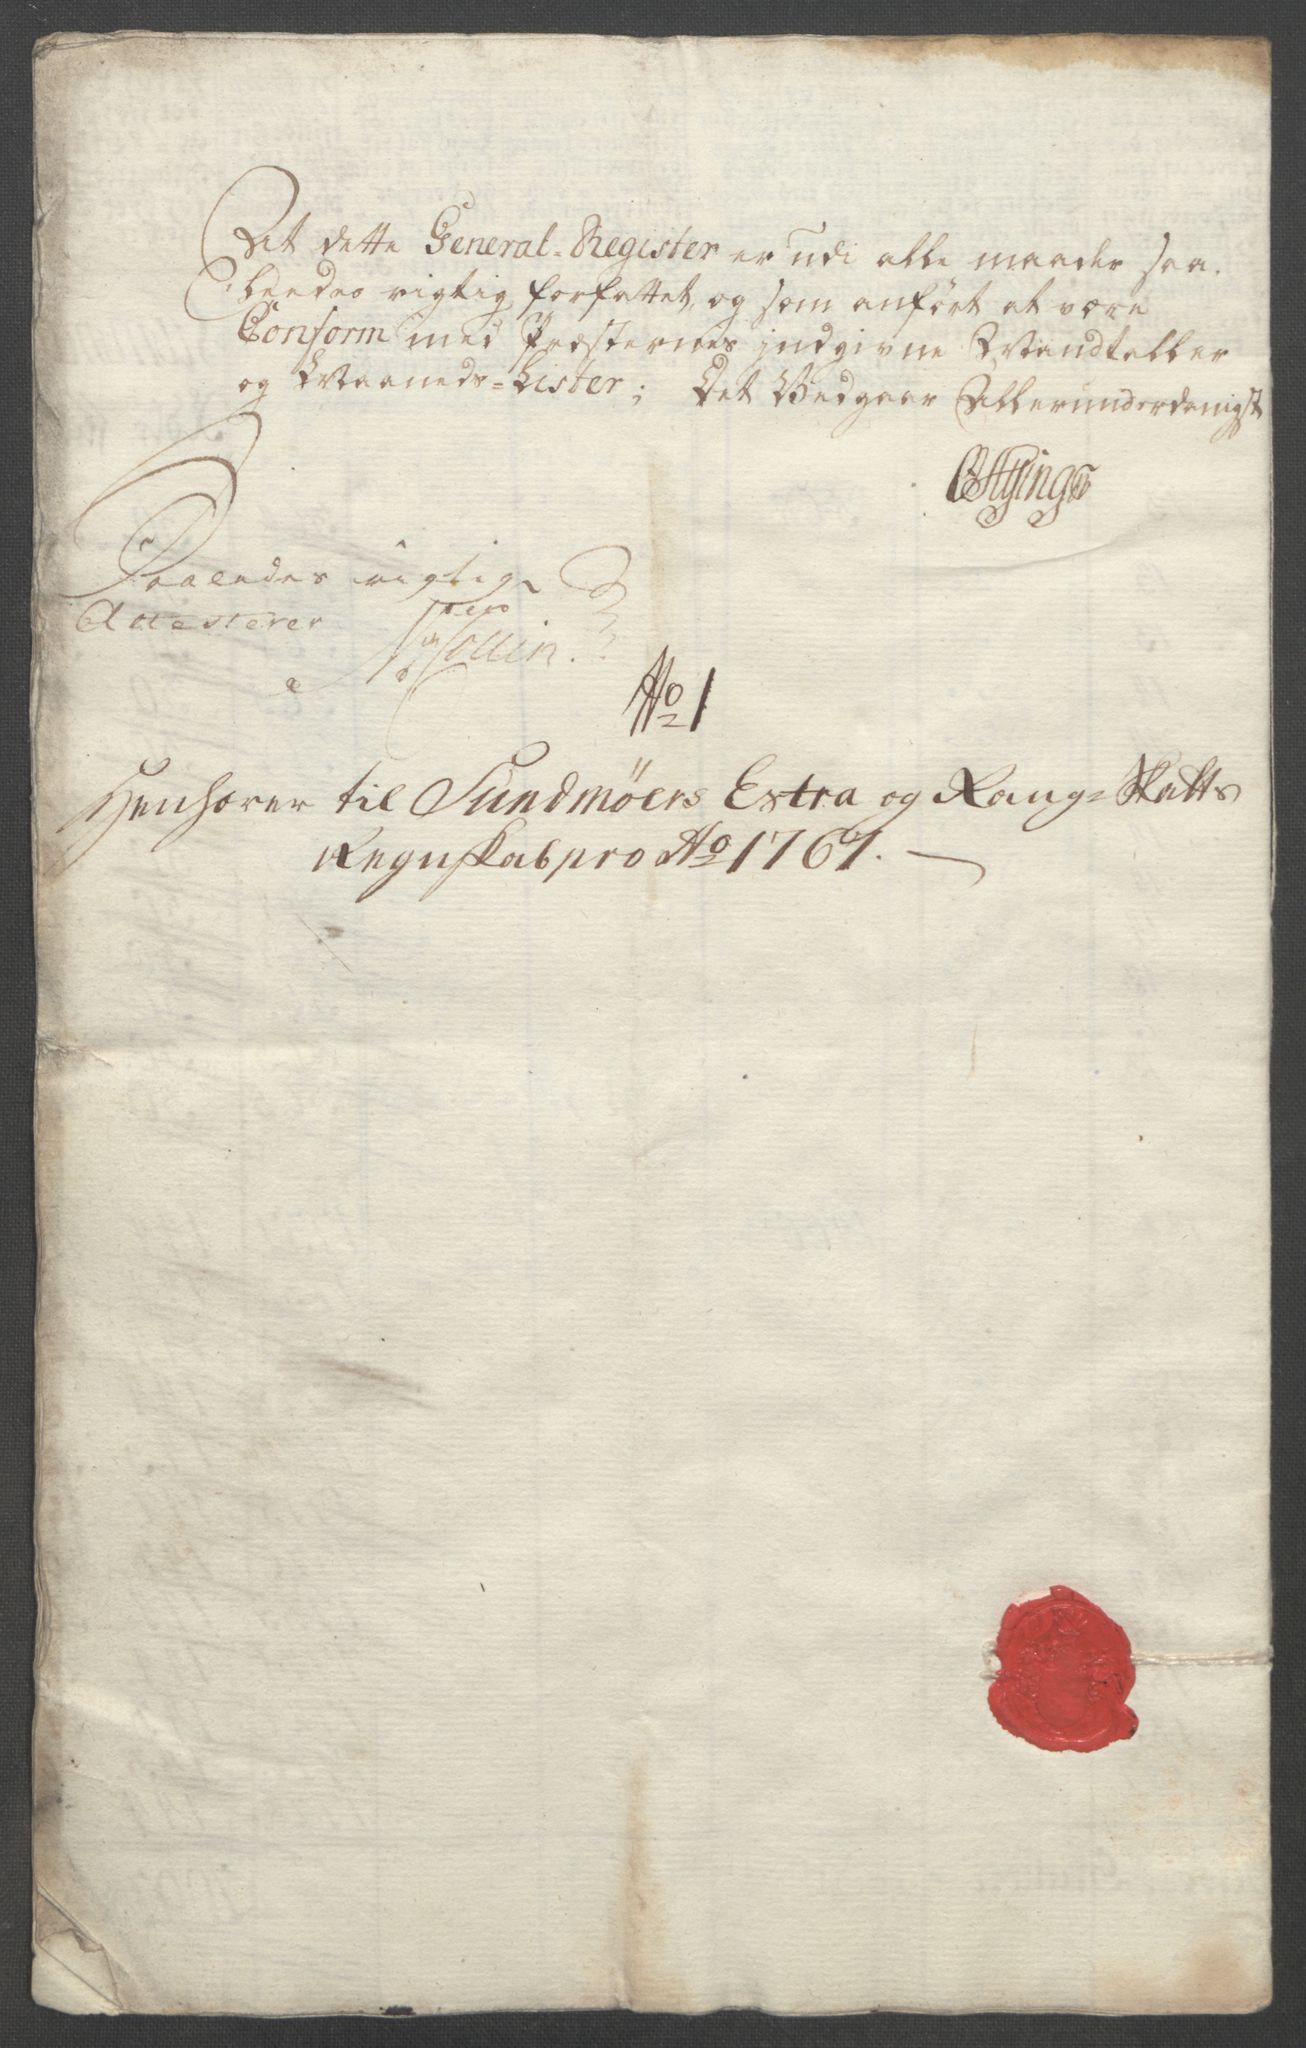 At dette General-Register er udi alle maader saa-
leedes rigtig forfattet, og som anført at være
Conform med Præsternes indgivne Mandtaller
og Maaneds-Lister; Det Vedgaar Allerunderdanigst
Saaledes rigtig
Attesterer Collin.
No 1
Henhører til Sundmøers Extra og Rang-Skatts
Regnskab pro Ao 1767.